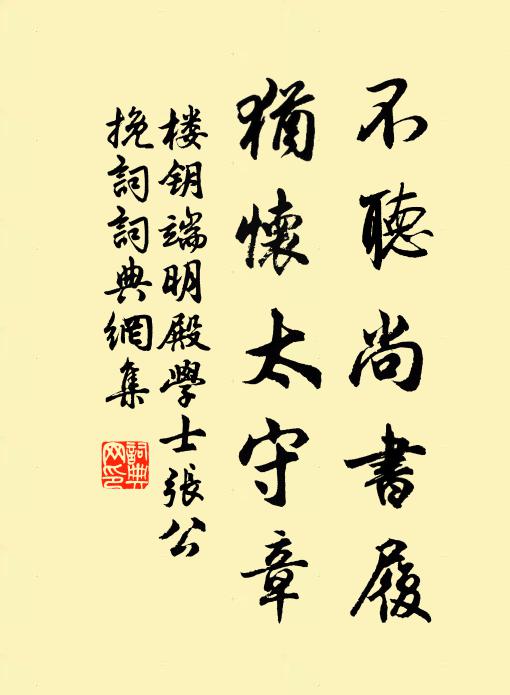 不聽尚書履
猶懷太守章
楼钥端明殿學士張公
挽詞詞典網集
詞典網印